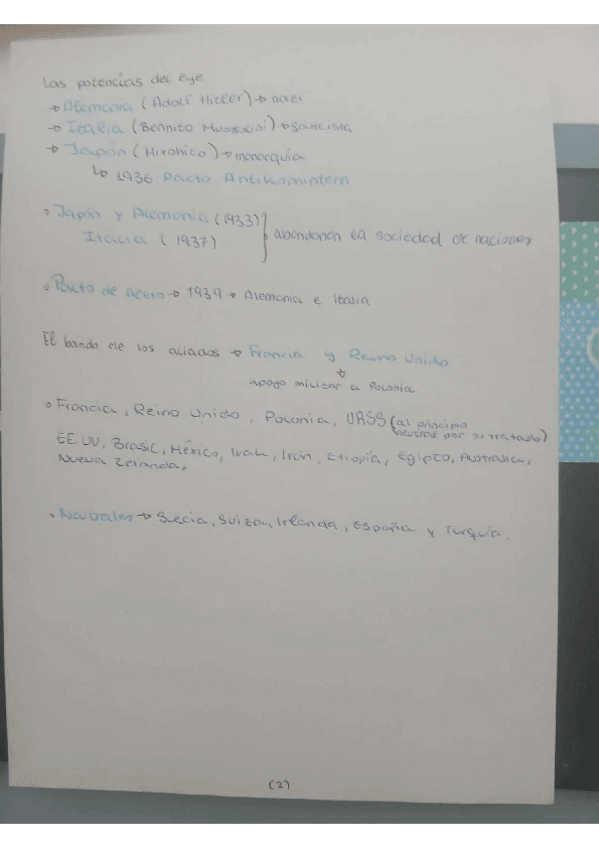 Las potencias del Eje
→ Alemania (Adolf Hitler) → nazi
→ Italia (Bennito Mussolini) → fascista
→ Japón (Hirohico) → monarquía
↳ 1936 Pacto Antikomintern
• Japón y Alemania (1933)
Italia (1937) } abandonan la sociedad de naciones
• Pacto de Acero → 1939 → Alemania e Italia
El bando de los aliados → Francia y Reino Unido
↓
apoyo militar a Polonia
• Francia, Reino Unido, Polonia, URSS (al principio
neutral por su tratado)
EE.UU, Brasil, México, Irak, Irán, Etiopía, Egipto, Australia,
Nueva Zelanda.
• Neutrales → Suecia, Suiza, Irlanda, España y Turquía.
(2)